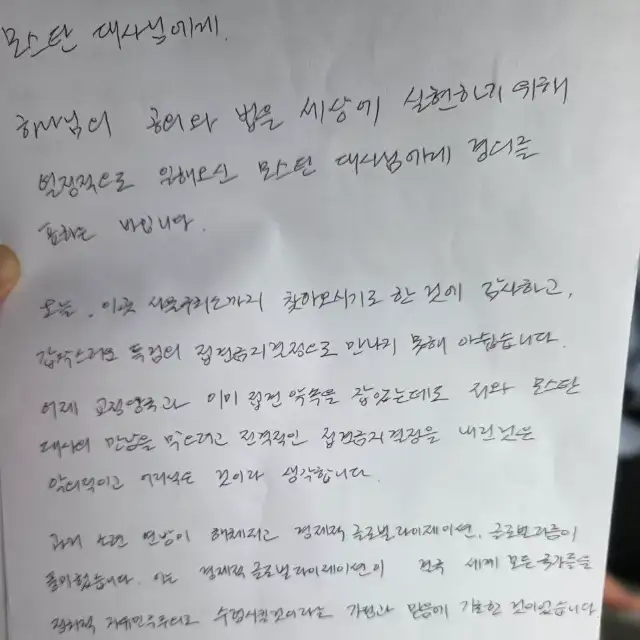 모스탄 대사님에게.
하나님의 공의와 법을 세상에 실현하기 위해
열정적으로 일해오신 모스탄 대사님에게 경의를
표하는 바입니다.
오늘, 이곳 서울구치소까지 찾아오시기로 한 것에 감사하고,
갑작스러운 특검의 접견금지결정으로 만나지 못해 아쉽습니다.
어제 교정당국과 이미 접견 약속을 잡았는데도 저와 모스탄
대사의 만남을 막으려고 전격적인 접견금지결정을 내린것은
악의적이고 어리석은 것이라 생각합니다.
과거 소련 연방이 해체되고 경제적 글로벌라이제이션, 글로벌리즘이
풍미했습니다. 이는 경제적 글로벌라이제이션이 전 세계 모든 국가들을
정치적 자유민주주의로 수렴시킬것이라는 가정과 믿음에 기초한 것이었습니다